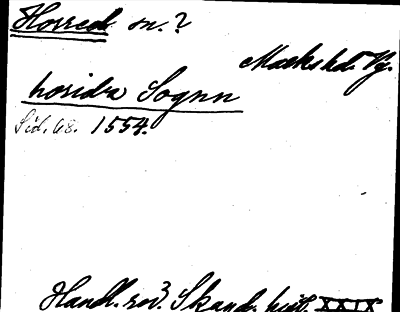 Horred sn.?
Marks hd. Vg.
horidra Sognn
Sid. 68. 1554.
Handl. rör. Skand. hist. XXIX